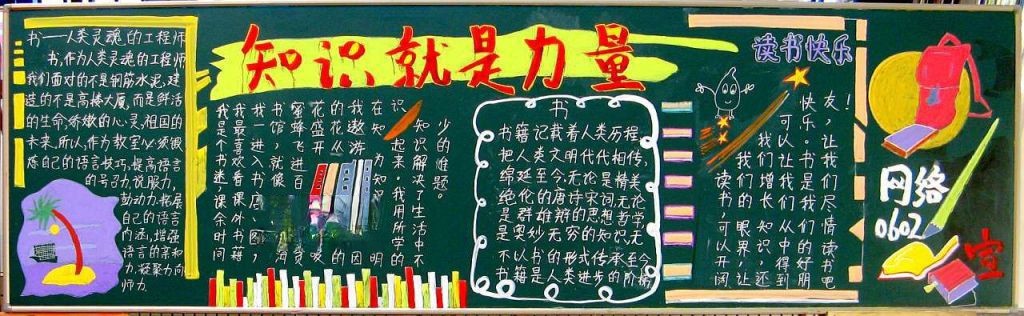 书——人类灵魂的工程师
书,作为人类灵魂的工程师
我们面对的不是钢筋水泥,建
造的不是高楼大厦,而是鲜活
的生命,娇嫩的心灵,祖国的
未来.所以,作为教室必须锻
炼自己的语言技巧,提高语言
的号召力,说服力,
鼓动力.拓展
自己的语言
内涵,增强
语言的亲和
力,凝聚力向
师力.
知识就是力量
我是个书迷,课余时间
我最喜欢看课外书籍
我一进入书店、图
书馆,就像
蜜蜂飞进百
花盛开
的花丛
我遨游
在知
识起来。我用所学的
知识解决了生活中不
少的难题。
书
书籍记载着人类历程,
把人类文明代代相传,
绵延至今.无论是精美
绝伦的唐诗宋词,无论
是群雄辩的思想哲学
是奥妙无穷的知识,无
不以书的形式传承至今
书籍是人类进步的阶梯
读书快乐
读书,可以开阔
我们的眼界,让
我们增长知识,还
可以让我们从中得到
快乐。
友,让我们尽情读书吧!
网络
0602
宣